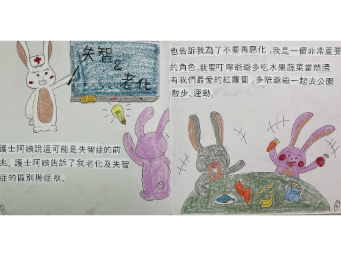 失智
&
老化
護士阿姨說這可能是失智症的前
兆。護士阿姨告訴了我老化及失智
症的區別與症狀。
也告訴我為了不要再惡化,我是一個非常重要
的角色,我要叮嚀爺爺多吃水果蔬菜當然還
有我們最愛的紅蘿蔔,多陪爺爺一起去公園
散步、運動。